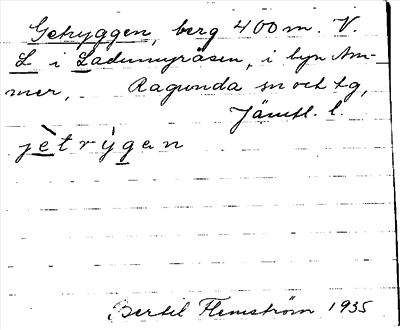 Getryggen, berg 400 m. V.
L i Ladumyråsen, i byn Am-
mer, Ragunda sn och tg,
Jämtl. l.
jètrýgan
Bertil Flemström 1935